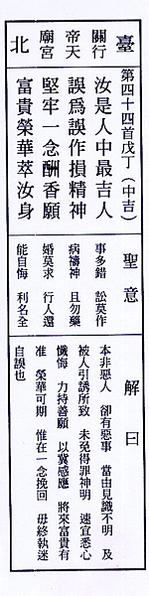 臺
關帝廟
行天宮
北
第四十四首戊丁（中吉）
汝是人中最吉人
誤為誤作損精神
堅牢一念酬香願
富貴榮華萃汝身
聖意
事多錯　訟莫作
病禱神　且勿藥
婚莫求　行人還
能自悔　利名全
解曰
本非惡人　卻有惡事　當由見識不明　及
被人引誘所致　未免得罪神明　速宜悉心
懺悔　力持善願　以冀感應　將來富貴有
准　榮華可期　惟在一念挽回　毋終執迷
自誤也